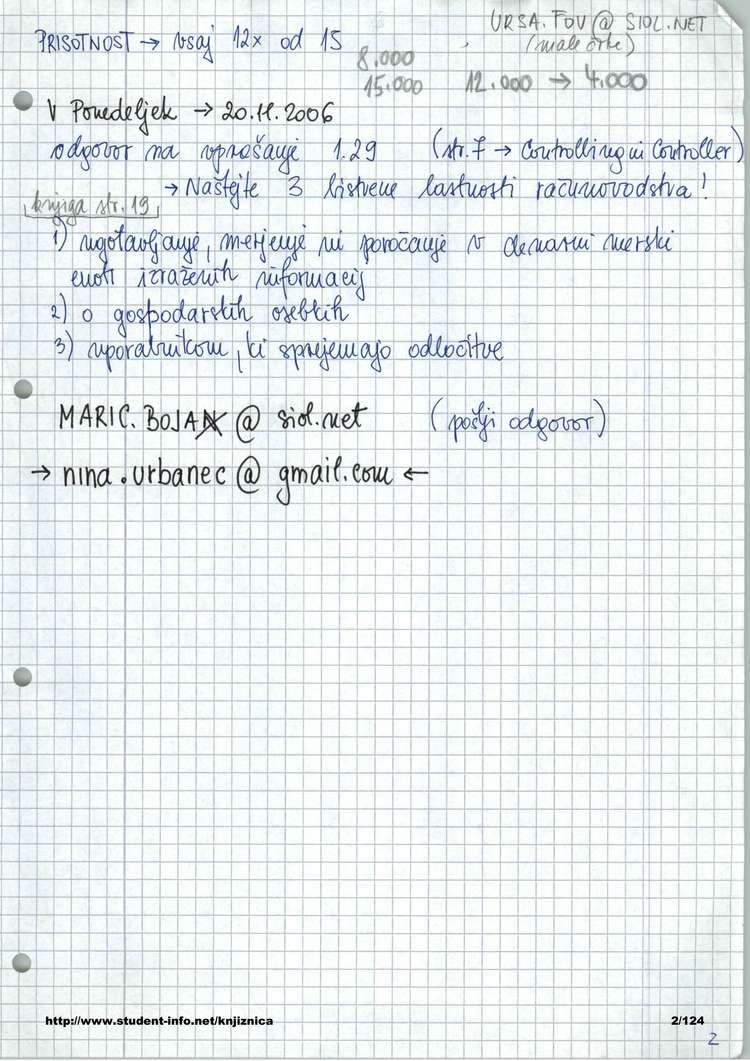 URSA.FOV@SIOL.NET
PRISOTNOST → vsaj 12x od 15
(male črke)
8.000
15.000 12.000 → 4.000
V Ponedeljek → 20.11.2006
odgovor na vprašanje 1.29 (str. 7 → Controlling in Controller)
→ Naštejte 3 bistvene lastnosti računovodstva!
knjiga str. 19
1) ugotavljanje, merjenje in poročanje v denarni merski
enoti izraženih informacij
2) o gospodarskih osebkih
3) uporabnikom, ki sprejemajo odločitve
MARIC.BOJAN @ siol.net (pošlji odgovor)
→ nina.urbanec @ gmail.com ←
http://www.student-info.net/knjiznica 2/124
2